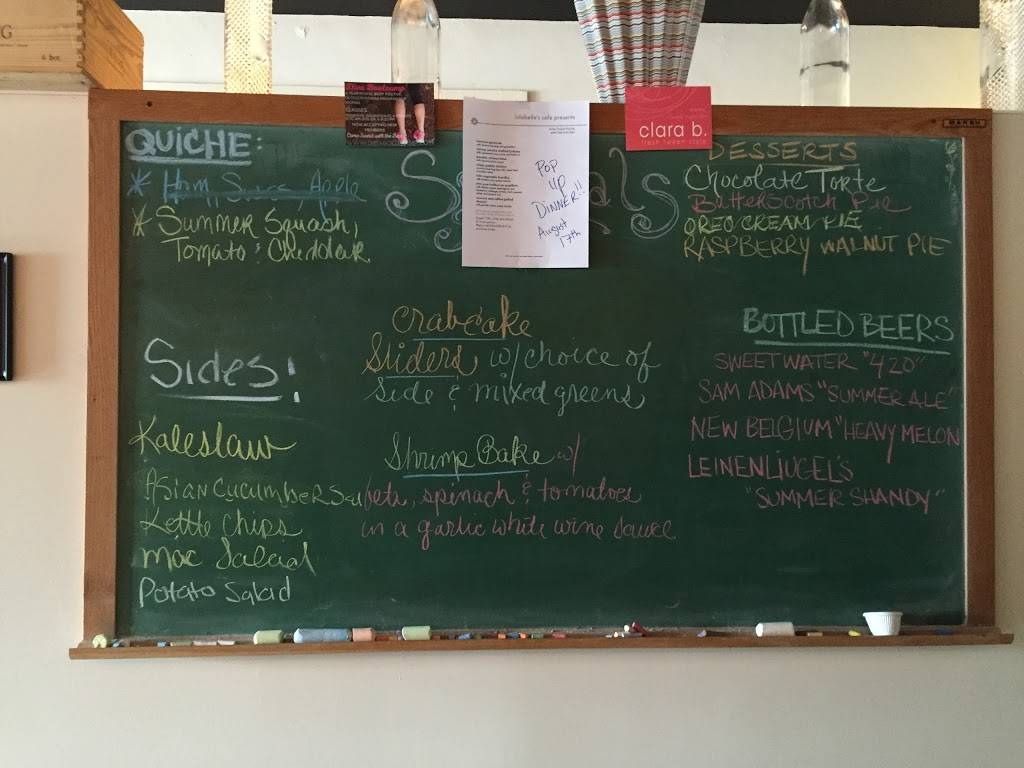 QUICHE:
* Ham, Swiss Apple
* Summer Squash,
Tomato & Cheddar
Sides!
Kaleslaw
Asian Cucumber Sal
Kettle Chips
Mac Salad
Potato Salad
Specials
Crabcake
Sliders w/ choice of
Side & mixed greens
Shrimp Bake w/
feta, spinach & tomatoes
in a garlic white wine sauce
POP
UP
DINNER!!
August
17th
clara b.
DESSERTS
Chocolate Torte
Butterscotch Pie
OREO CREAM PIE
RASPBERRY WALNUT PIE
BOTTLED BEERS
SWEETWATER "420"
SAM ADAMS "SUMMER ALE"
NEW BELGIUM "HEAVY MELON
LEINENLIUGEL'S
"SUMMER SHANDY"